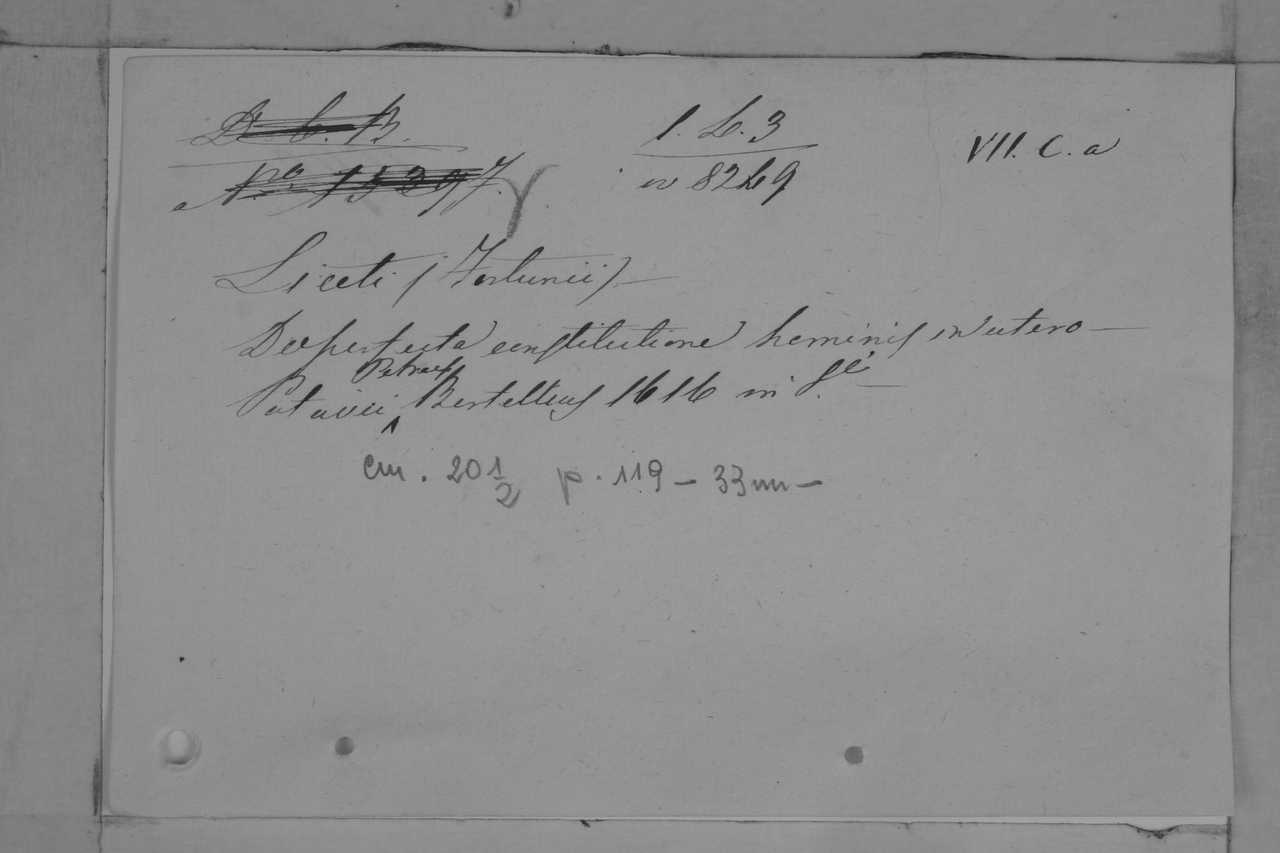 D. 6. B. 1. L. 3 VII. C. a
N.° 15397. 8269
Liceti (Fortunii)
De perfecta constitutione hominis in utero
Patavii Petrus Bertellius 1616 in 8.°
cm. 20 1/2 p. 119 - 33 nn -